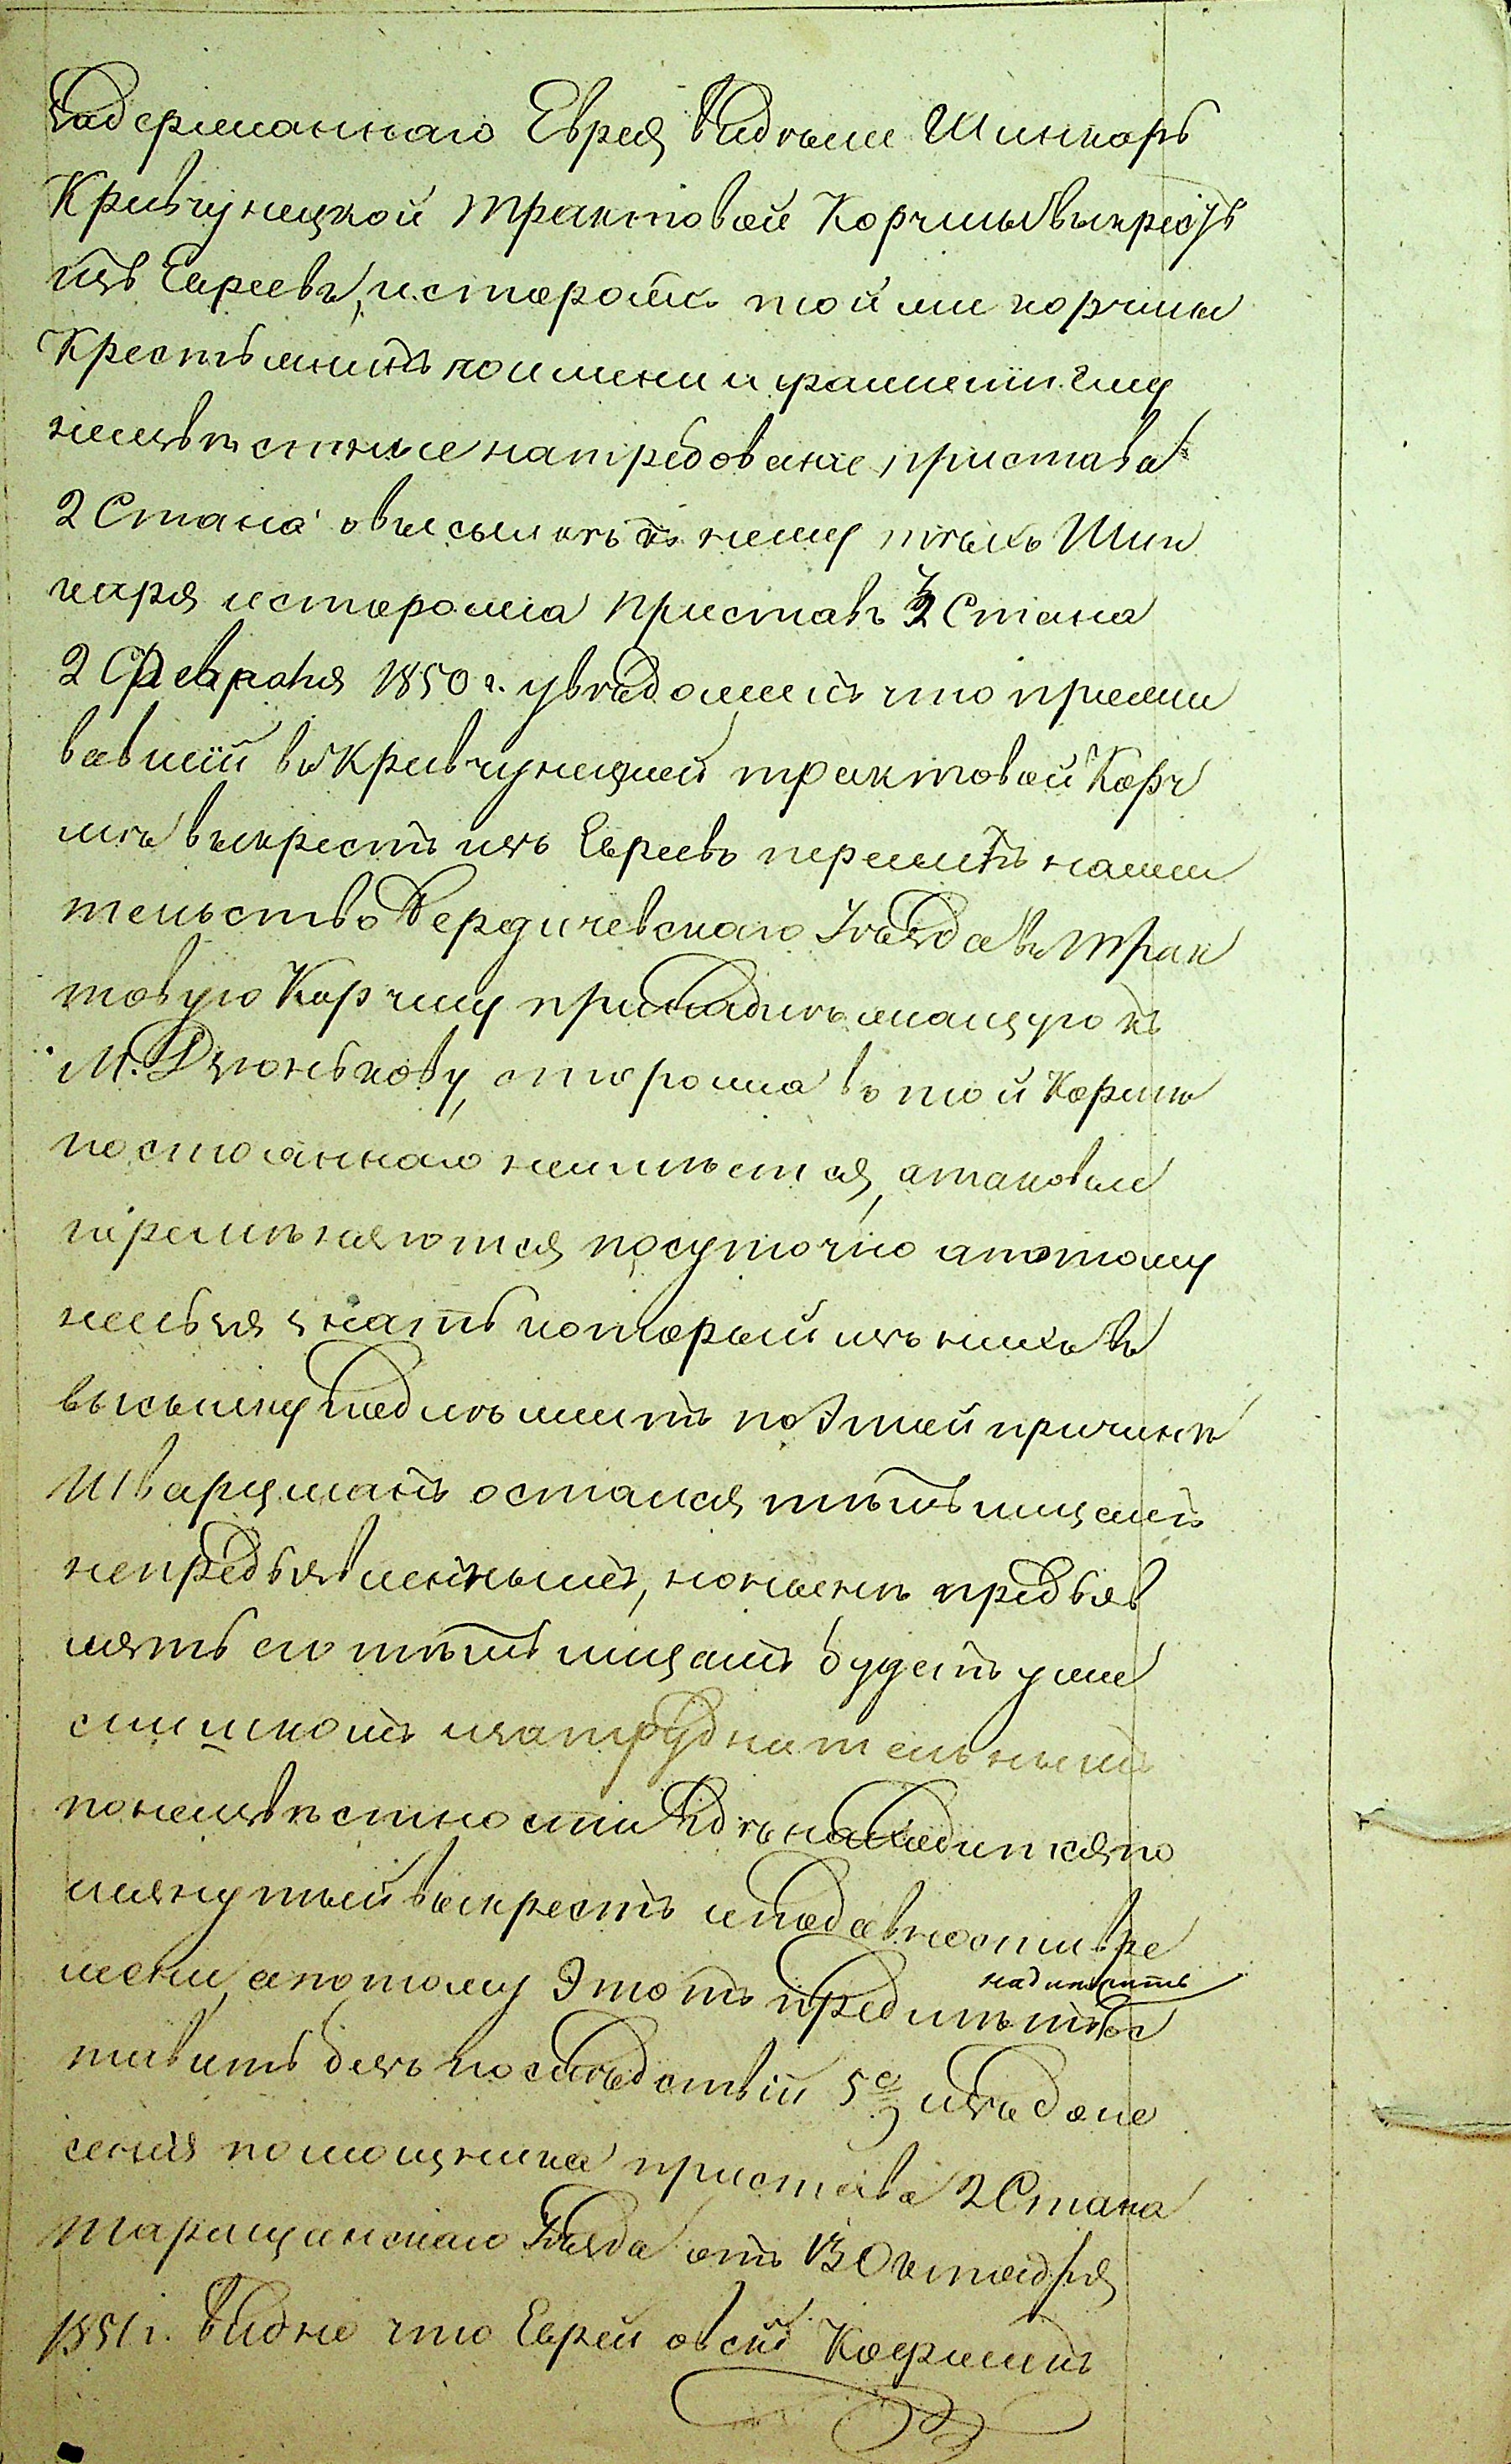 задержаннаго Еврея видѣли Шинкарь
Кривчунецкой трактовой Корчмы выкрестъ
изъ Евреевъ, и сторожъ той же корчмы
Крестьянинъ по имени и фамиліи ему
неизвѣстные на требованіе пристава
2 Стана о высылкѣ къ нему тѣхъ Шин
каря и сторожа приставъ 2 Стана
2 Февраля 1850 г. увѣдомилъ что прожи
вавшій въ Кривчунецкой трактовой Корч
мѣ выкрестъ изъ Евреевъ перешелъ на жи
тельство Бердичевскаго Уѣзда въ трак
товую Корчму принадлежащую къ
М. Дзюнькову, сторожа въ той Корчмѣ
постояннаго неимѣется, а таковые
перемѣняются посуточно а потому
нельзя знать который изъ нихъ въ
высылку подлежитъ по этой причинѣ
Шварцманъ остался тѣмъ лицамъ
непредъявленнымъ, но нынѣ предъяв
лять его тѣмъ лицамъ будетъ уже
слишкомъ затруднительнымъ
по неизвѣстности гдѣ находится по
мянутый выкрестъ и по давности вре
мени, а потому этотъ предметъ надлежитъ ос
тавить безъ послѣдствій 5е, изъ доне
сенія помощника пристава 2 Стана
Таращанскаго Уѣзда отъ 13 Октября
1851 г. видно что Еврей Овсій Коерманъ